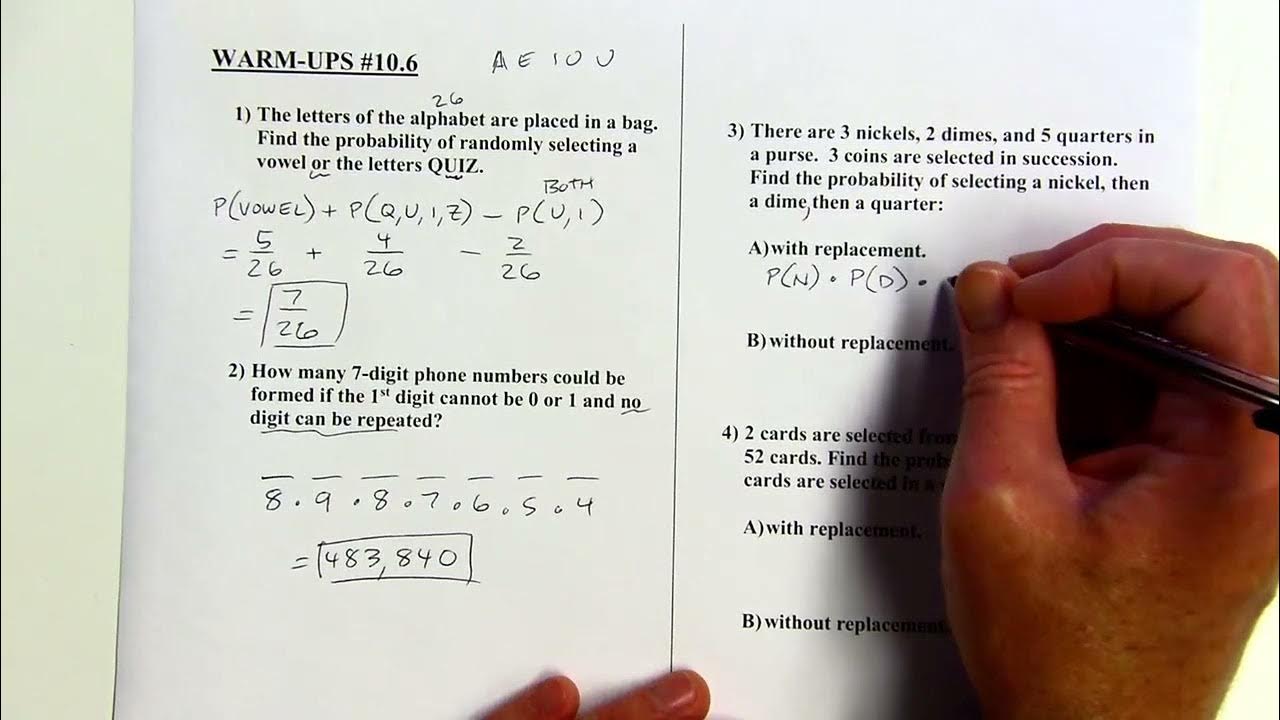 WARM-UPS #10.6
A E I O U
26
1) The letters of the alphabet are placed in a bag.
Find the probability of randomly selecting a
vowel or the letters QUIZ.
BOTH
P(VOWEL) + P(Q,U,I,Z) - P(U,I)
= 5/26 + 4/26 - 2/26
= 7/26
2) How many 7-digit phone numbers could be
formed if the 1st digit cannot be 0 or 1 and no
digit can be repeated?
8 . 9 . 8 . 7 . 6 . 5 . 4
= 483,840
3) There are 3 nickels, 2 dimes, and 5 quarters in
a purse. 3 coins are selected in succession.
Find the probability of selecting a nickel, then
a dime, then a quarter:
A) with replacement.
P(N) • P(D) •
B) without replacement.
4) 2 cards are selected from
52 cards. Find the
cards are selected in a
A) with replacement.
B) without replacement.